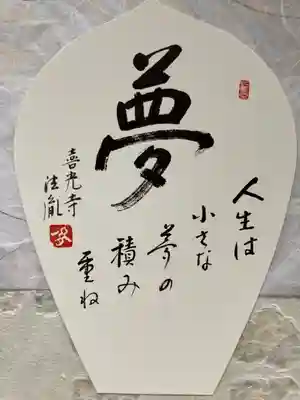 夢
人生は
小さな
夢の
積み
重ね
喜光寺
法胤